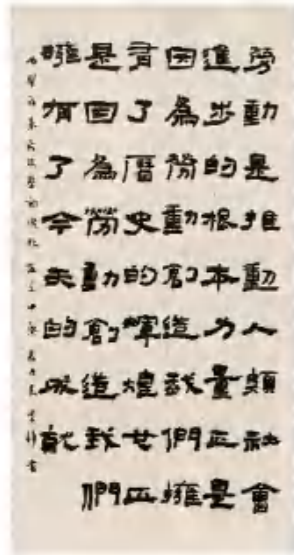 勞動是推動人類社會
進步的根本力量正是
因為勞動創造我們擁
有了曆史的輝煌也正
是因為勞動創造我們
擁有了今天的成就